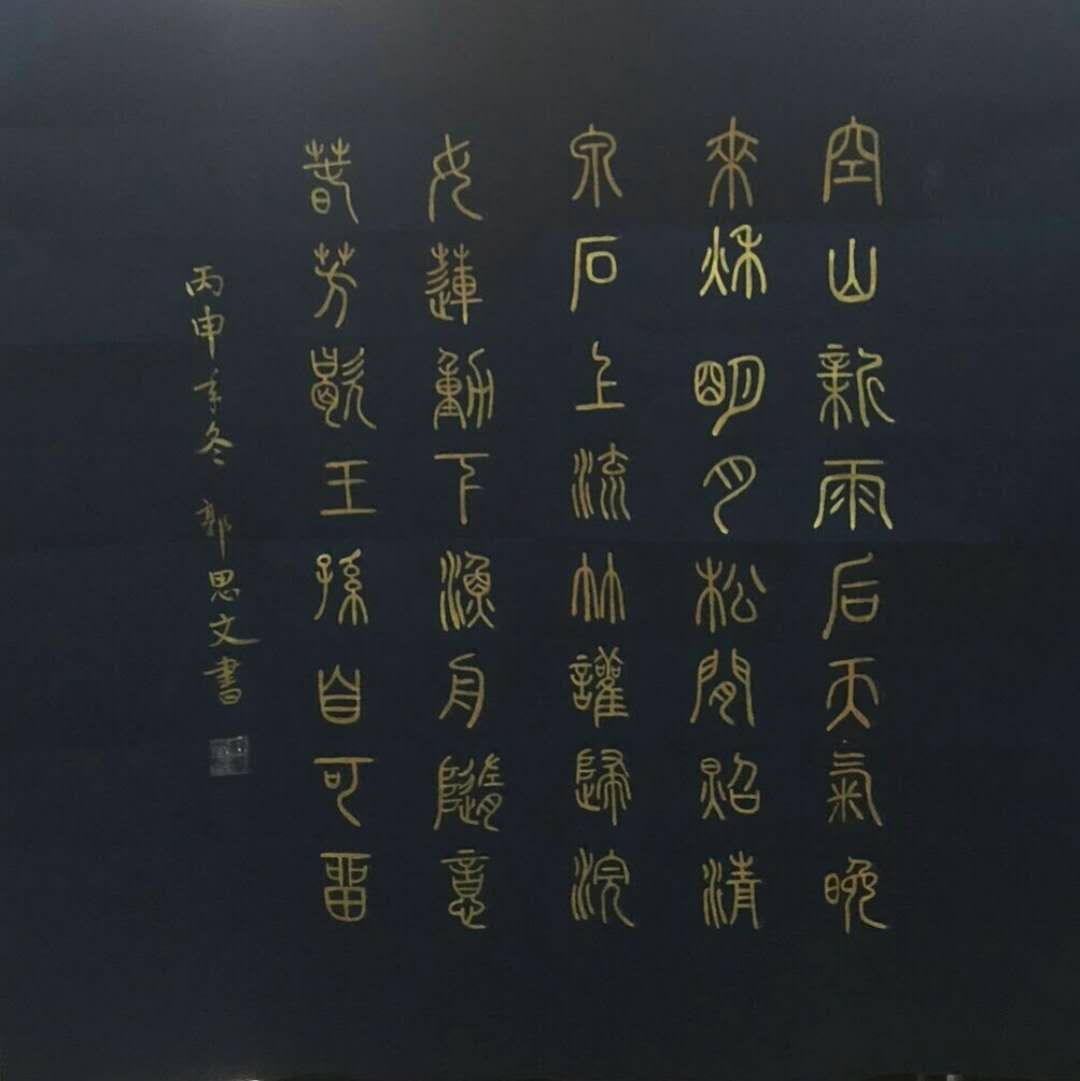 空山新雨后天氣晚
來秌明月松閒炤清
泉石上流竹讙歸浣
女蓮動下漁舟隨意
萅芳歇王孫自可畱
丙申年冬 郭思文書